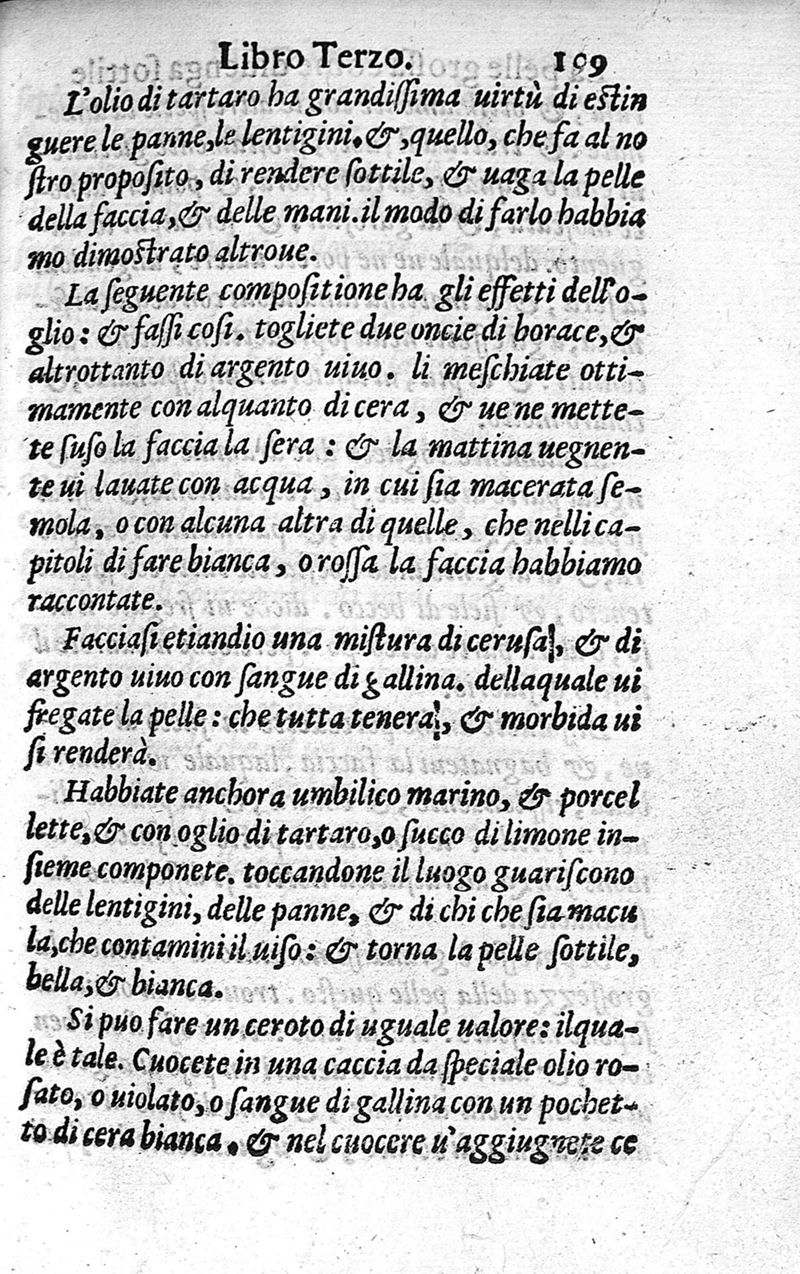 Libro Terzo. 109
L'olio di tartaro ha grandiſſima uirtù di eſtin
guere le panne, le lentigini. &, quello, che fa al no
ſtro propoſito, di rendere ſottile, & uaga la pelle
della faccia, & delle mani. il modo di farlo habbia
mo dimoſtrato altroue.
La ſeguente compoſitione ha gli effetti dell'o-
glio: & faſſi coſi. togliete due oncie di borace, &
altrottanto di argento uiuo. li meſchiate otti-
mamente con alquanto di cera, & ue ne mette-
te ſuſo la faccia la ſera: & la mattina uegnen-
te ui lauate con acqua, in cui ſia macerata ſe-
mola, o con alcuna altra di quelle, che nelli ca-
pitoli di fare bianca, o roſſa la faccia habbiamo
raccontate.
Facciaſi etiandio una miſtura di ceruſa, & di
argento uiuo con ſangue di gallina. dellaquale ui
fregate la pelle: che tutta tenera, & morbida ui
ſi renderà.
Habbiate anchora umbilico marino, & porcel
lette, & con oglio di tartaro, o ſucco di limone in-
ſieme componete. toccandone il luogo guariſcono
delle lentigini, delle panne, & di chi che ſia macu
la, che contamini il uiſo: & torna la pelle ſottile,
bella, & bianca.
Si puo fare un ceroto di uguale ualore: ilqua-
le è tale. Cuocete in una caccia da ſpeciale olio ro-
ſato, o uiolato, o ſangue di gallina con un pochet-
to di cera bianca. & nel cuocere u'aggiugnete ce